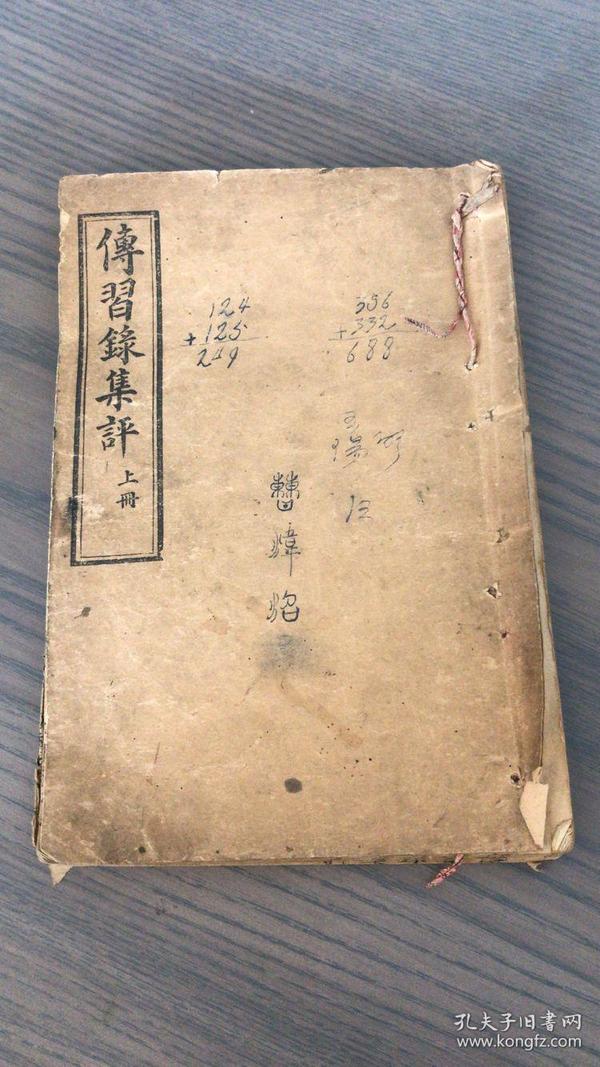 傳習錄集評 上冊
124
+125
249
356
+332
688
王
陽
曹煒炤
孔夫子旧书网
www.kongfz.com